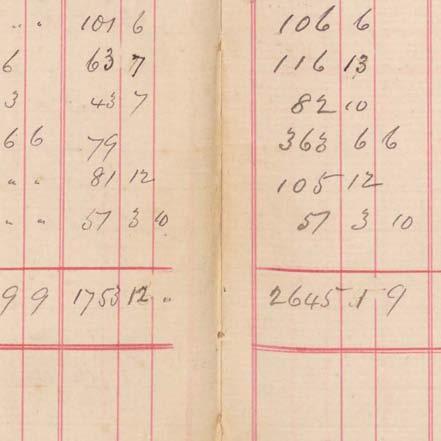 " " 101 6 106 6
6 63 7 116 13
3 43 7 82 10
6 6 79 363 6 6
" " 81 12 105 12
" " 57 3 10 57 3 10
9 9 1753 12 " 2645 1 9